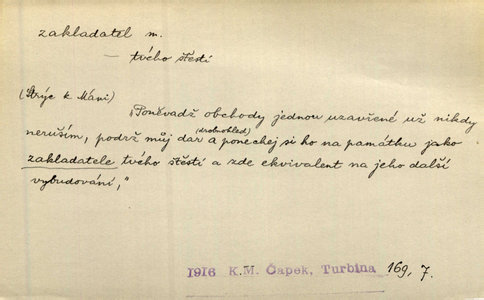 zakladatel m.
— tvého štěstí
(Strýc k Máni)
„Poněvadž obchody jednou uzavřené už nikdy
neruším, podrž můj dar (drobnohled) a ponechej si ho na památku jako
zakladatele tvého štěstí a zde ekvivalent na jeho další
vybudování,"
1916 K.M. Čapek, Turbina 169, 7.